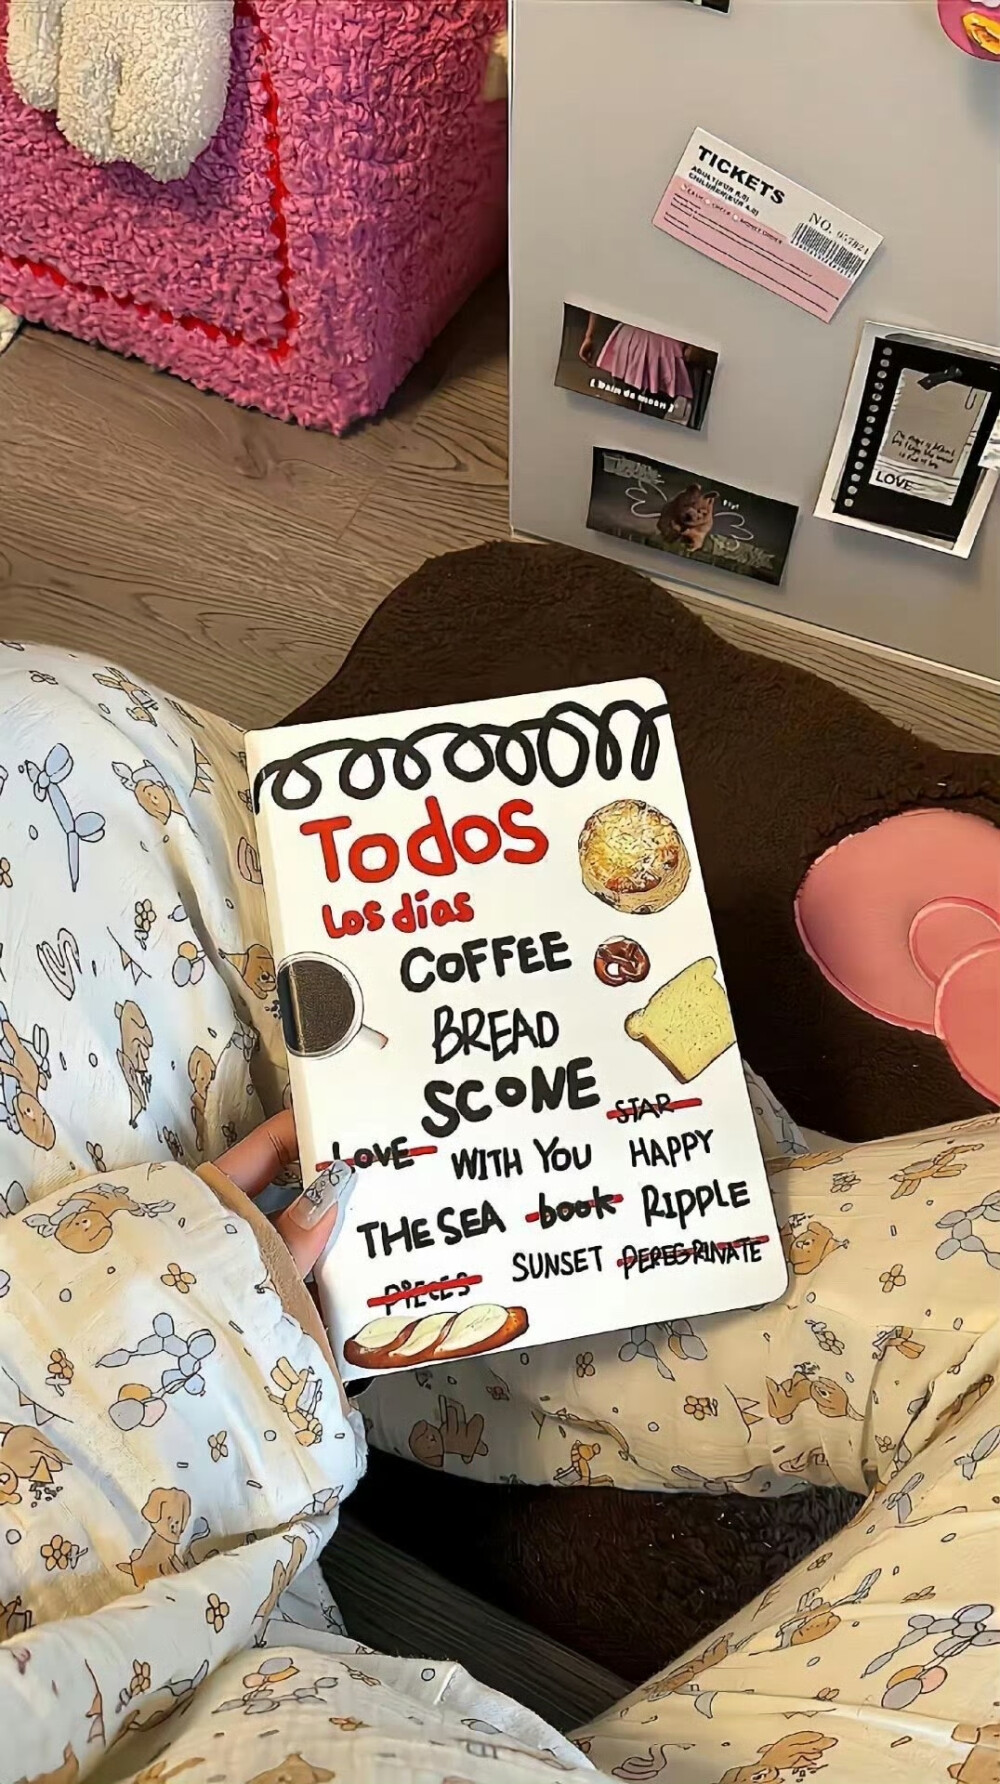 TICKETS
NO.
LOVE
Fly!
Todos
los días
COFFEE
BREAD
SCONE
STAR
LOVE WITH YOU HAPPY
THE SEA book RIPPLE
PIECES SUNSET PEREGRINATE